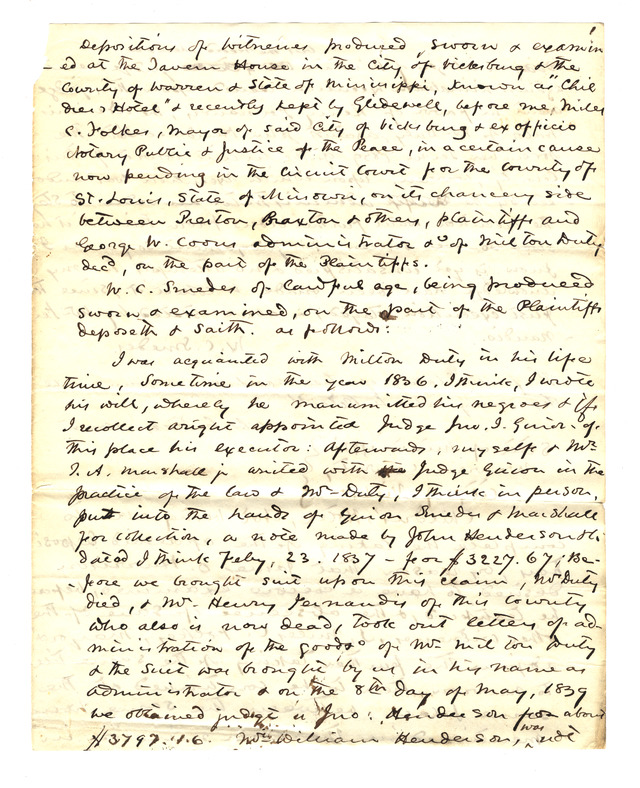 Depositions of Witnesses produced, sworn & examin
ed at the Tavern House in the City of Vicksburg & the
County of Warren & State of Mississippi, known as "Chil
dres Hotel" & recently kept by Glidewell, before me, Miles
C. Folkes, Mayor of said City of Vicksburg & ex officio
Notary Public & Justice of the Peace, in a certain cause
now pending in the Circuit Court for the County of
St. Louis, State of Missouri, on its chancery side
between Preston, Braxton & others, plaintiffs and
George W. Coons administrator &c of Milton Duty
decd, on the part of the Plaintiffs.
W. C. Smedes of lawful age, being produced
sworn & examined, on the part of the Plaintiffs
deposeth & saith. as follows:
I was acquainted with Milton Duty in his life
time, Sometime in the year 1836, I think, I wrote
his will, whereby he manumitted his negroes & if
I recollect aright appointed Judge Jno. I. Guion of
this place his executor: Afterwards, myself & Mr
T. A. Marshall jr united with Judge Guion in the
practice of the law & Mr Duty, I think in person,
put into the hands of Guion Smedes & Marshall
for collection, a note made by John Henderson &
dated I think Feby, 23. 1837 - for $3227.67; Be-
fore we brought suit upon this claim, Mr Duty
died, & Mr. Henry Fernandis of this County
who also is now dead, took out letters of ad
ministration of the goods &c of Mr Milton Duty
& the Suit was brought by us in his name as
administrator & on the 8th day of May, 1839
we obtained judgt v Jno: Henderson for about
$3797.16. Mr William Henderson, was not